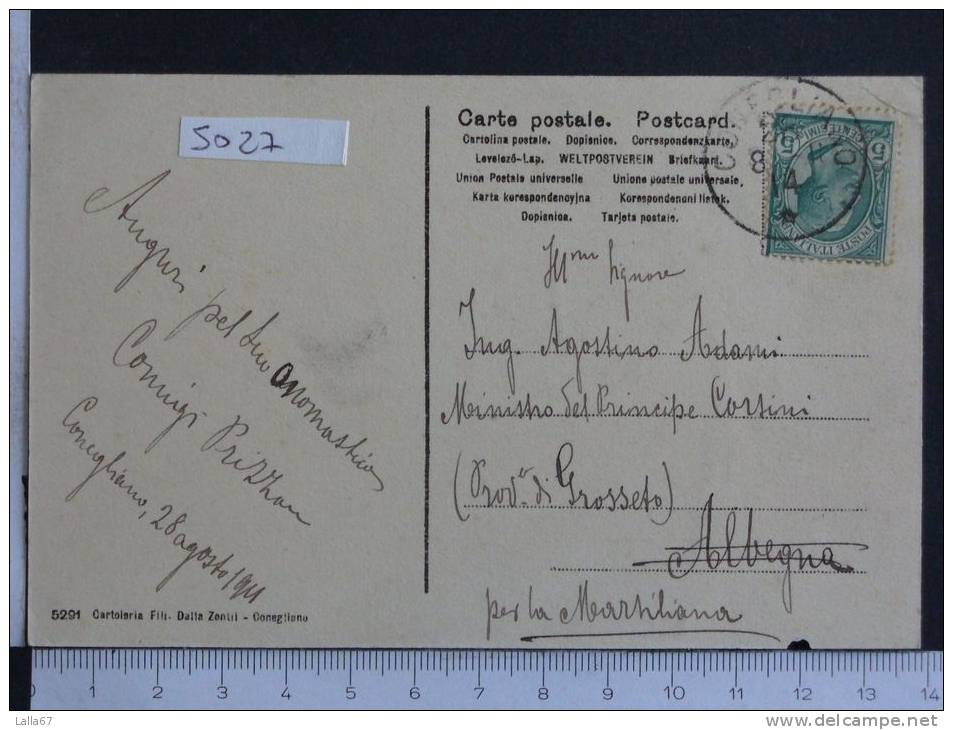 5027
Carte postale. Postcard.
Cartolina postale. Dopisnice. Correspondenzkarte.
Levelező-Lap. WELTPOSTVEREIN Briefkaart.
Union Postale universelle Unione postale universale,
Karta korespondencyjna Korespondencni listek.
Dopisnica. Tarjeta postale.
POSTE ITALIANE
5
Auguri
pel tuo onomastico
Coniugi
Conegliano, 28 agosto 1911
Signore
Ing. Agostino Adami
Ministro del Principe Corsini
(Prov. di Grosseto)
Albegna
per la Marsiliana
5291 Cartoleria Flli. Dalla Zentil - Conegliano
0 1 2 3 4 5 6 7 8 9 10 11 12 13 14
Lalla67
www.delcampe.net